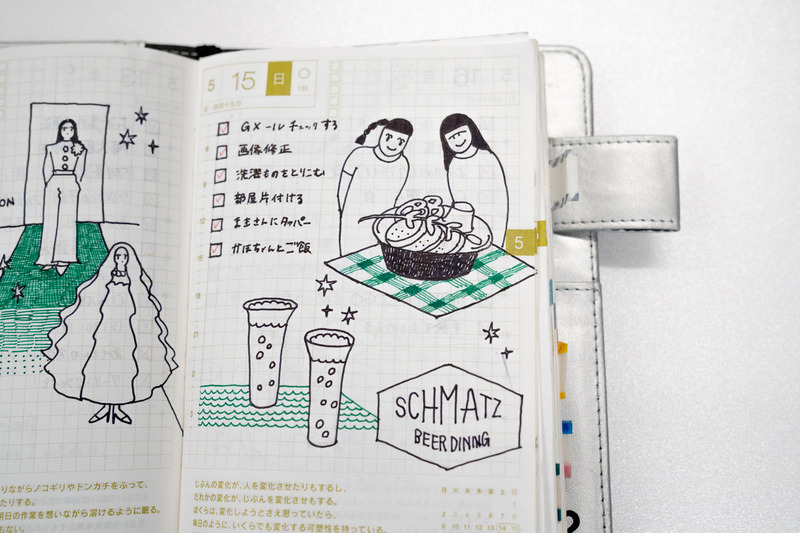 5 15 日
Gメールチェックする
画像修正
洗濯ものをとりこむ
部屋片付ける
さんにタッパー
かほちゃんとご飯
5
SCHMATZ
BEER DINING
ON
りながらノコギリやトンカチをふって、
たりする。
明日の作業を想いながら溶けるように眠る。
もない。
じぶんの変化が、人を変化させたりもするし、
だれかの変化が、じぶんを変化させもする。
ぼくらは、変化しようとさえ思っていたら、
毎日のように、いくらでも変化する可塑性を持っている。
月 火 水 木 金 土 日
1
2 3 4 5 6 7 8
9 10 11 12 13 14 15